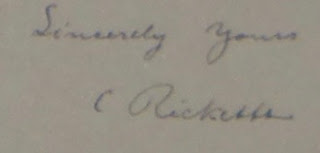 Sincerely Yours
C Ricketts